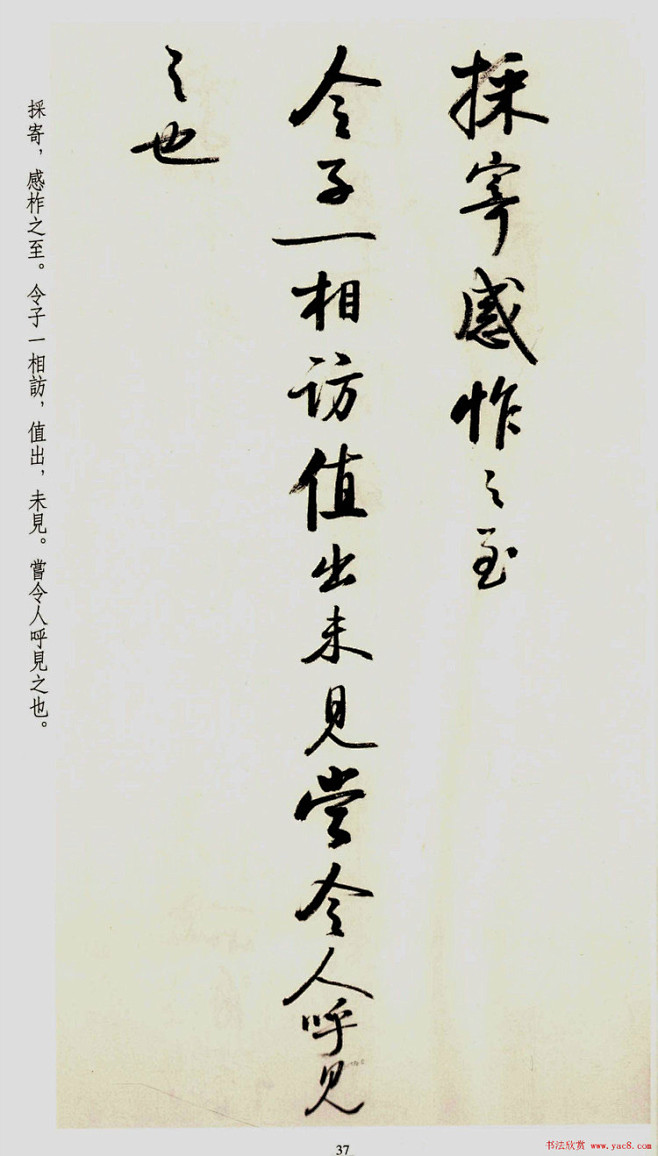 採寄感怍之至
令子一相訪值出未見嘗令人呼見
之也
採寄，感柞之至。令子一相訪，值出，未見。嘗令人呼見之也。
37
书法欣赏 www.yac8.com